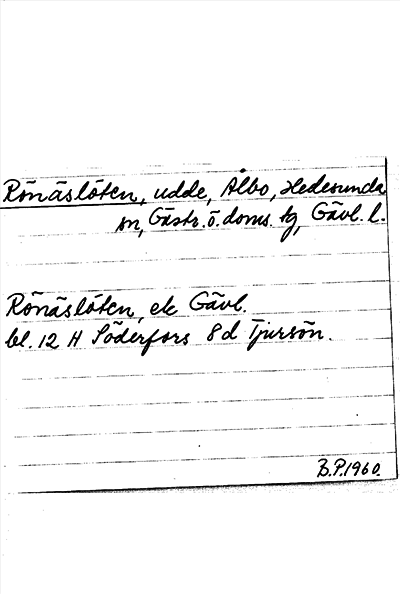 Rönäslöten, udde, Ålbo, Hedesunda
sn, Gästr. ö. doms. tg, Gävl. l.
Rönäslöten, ek Gävl.
bl. 12 H Söderfors 8 d Tjursön.
B.P. 1960.